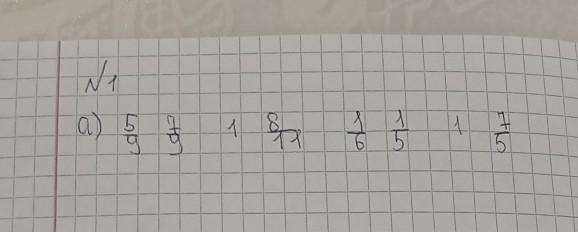 №1
а) 5/9 7/9 1 8/11 1/6 1/5 1 7/5